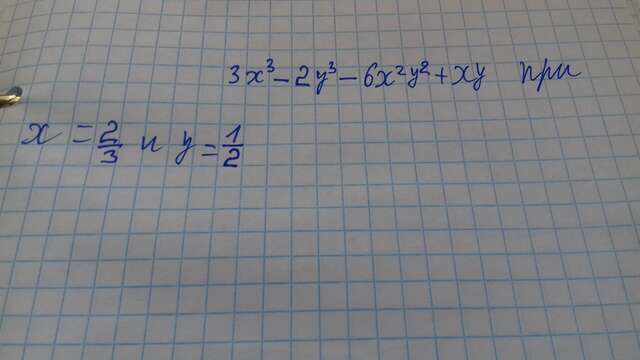 3x³ - 2y³ - 6x²y² + xy при
x = 2/3 и y = 1/2